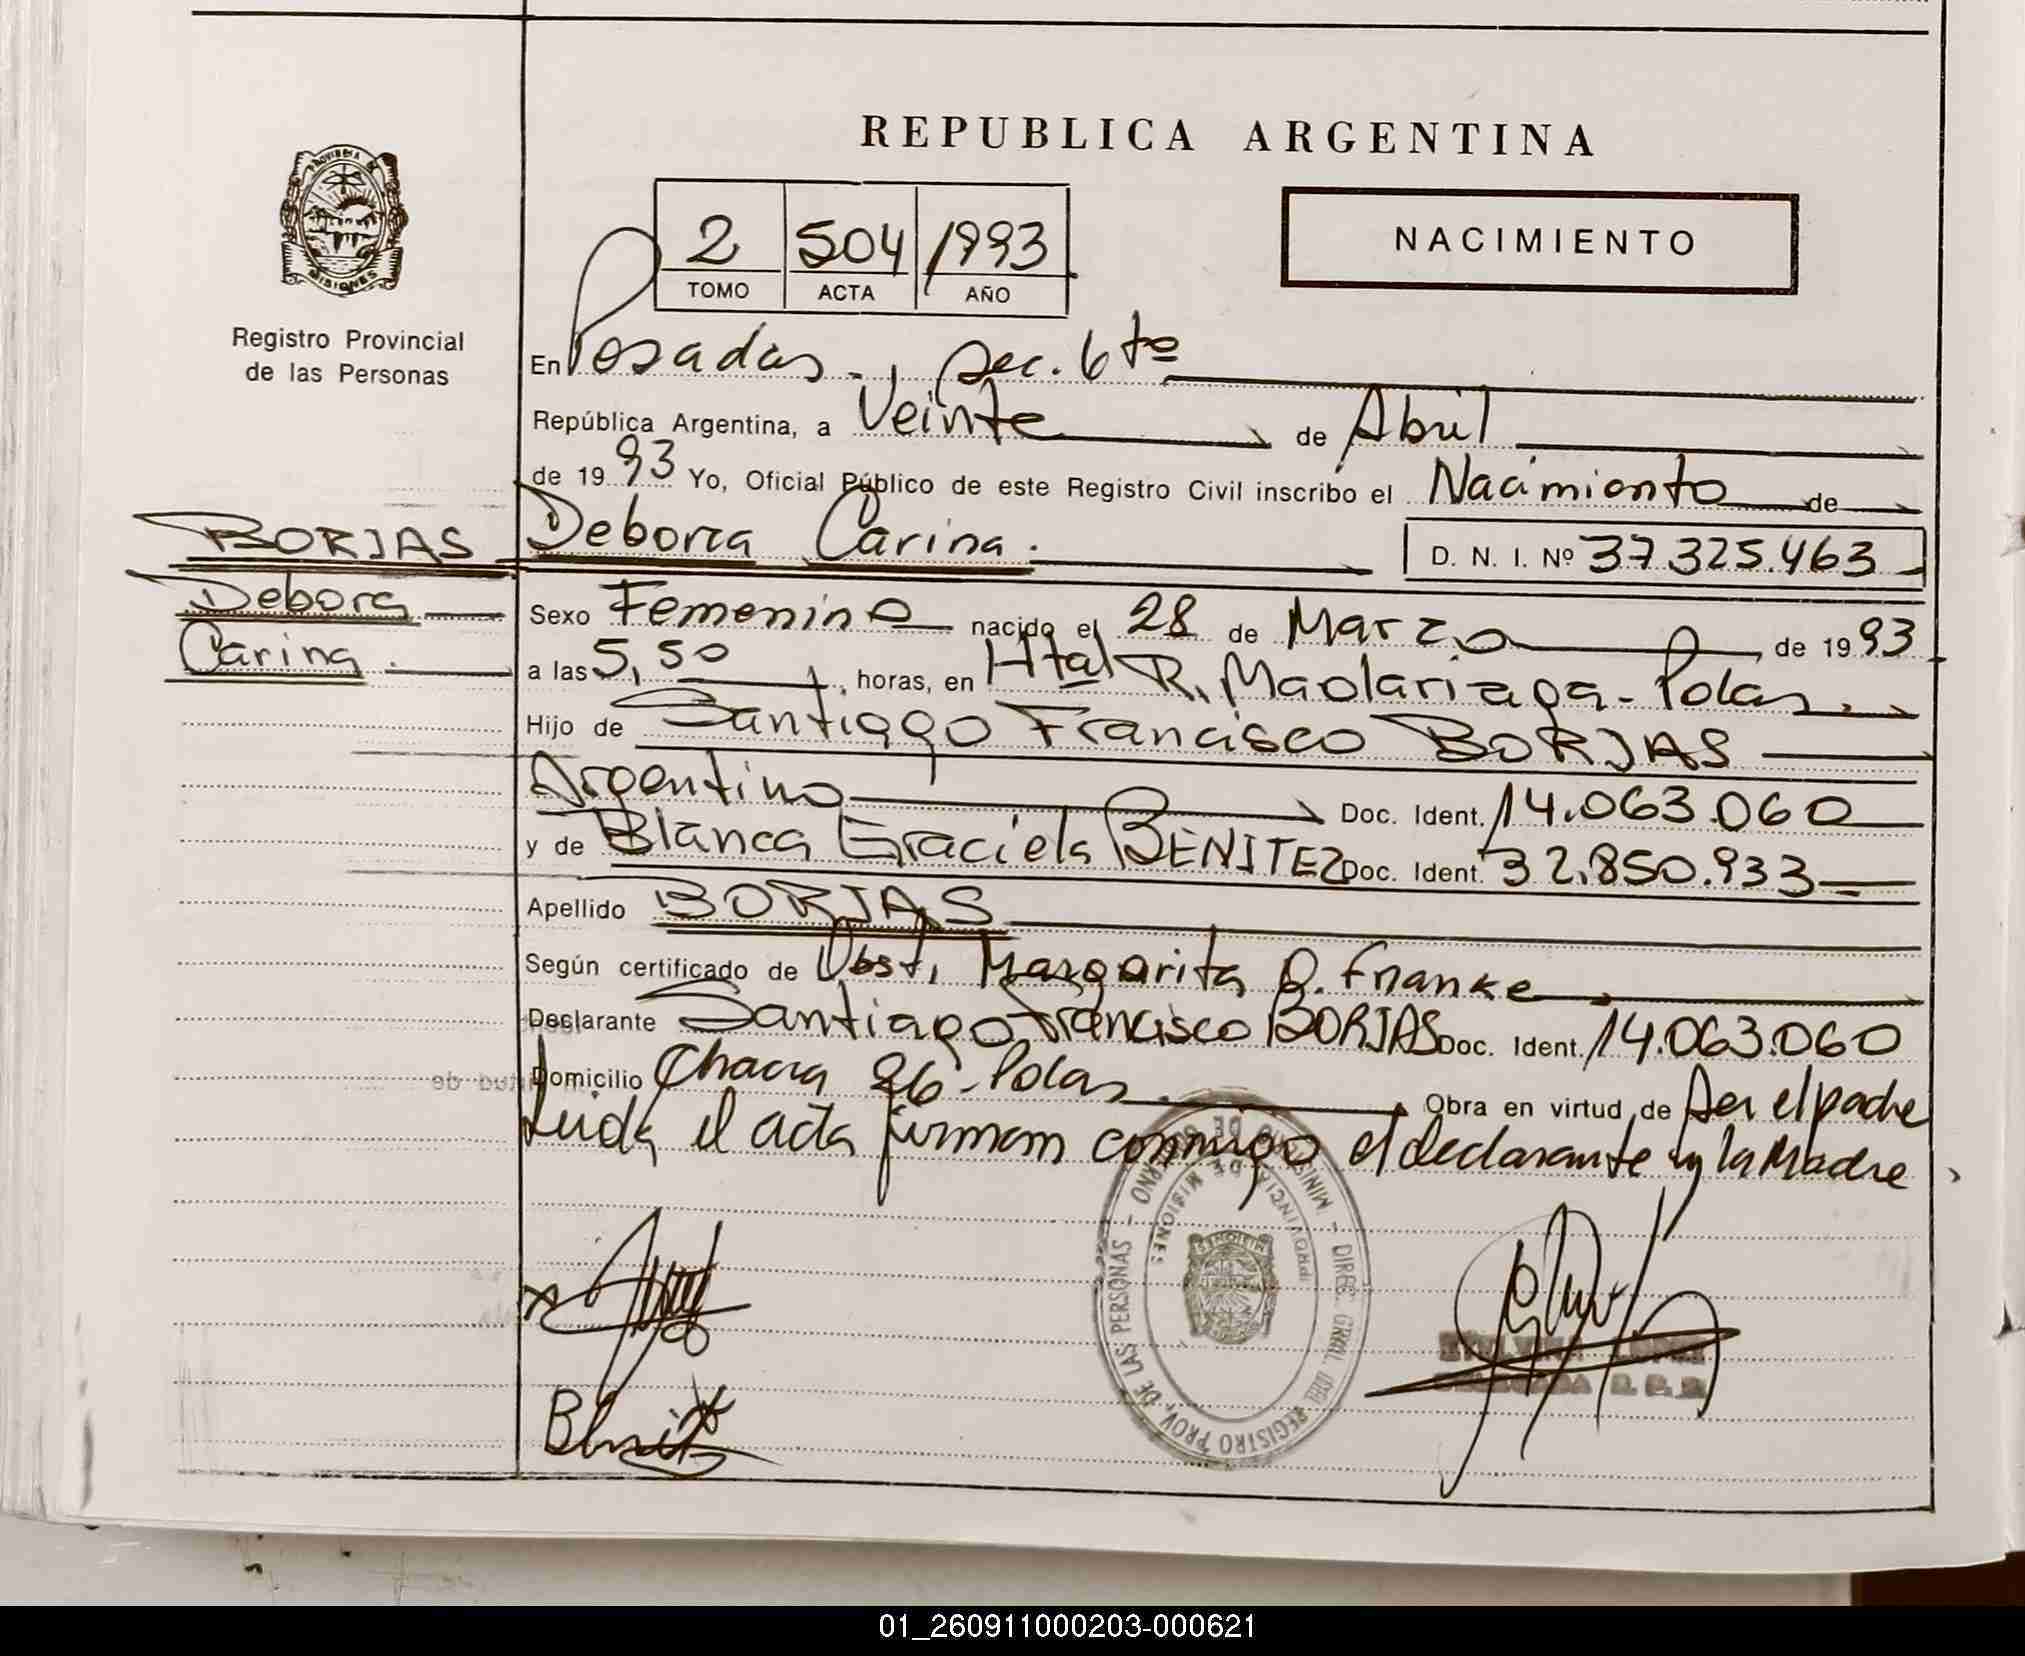 REPUBLICA ARGENTINA
2 504 1993
TOMO ACTA AÑO
NACIMIENTO
PROVINCIA DE
MISIONES
Registro Provincial
de las Personas
En Posadas., Sec. 6ta
República Argentina, a Veinte de Abril
de 1993 Yo, Oficial Público de este Registro Civil inscribo el Nacimiento de
BORJAS Debora Carina. D. N. I. Nº 37.325.463
Debora
Carina.
Sexo Femenino nacido el 28 de Marzo de 1993
a las 5,50, horas, en Htal R. Madariaga - Pdas.
Hijo de Santiago Francisco BORJAS
Argentino Doc. Ident. 14.063.060
y de Blanca Graciela BENITEZ Doc. Ident. 32.850.933
Apellido BORJAS
Según certificado de Obst. Margarita Q. Franke
Declarante Santiago Francisco BORJAS Doc. Ident. 14.063.060
Domicilio Chacra 26 - Pdas. Obra en virtud de Ser el padre
Leida el acta firman conmigo el declarante y la Madre.
MINISTERIO DE GOBIERNO - DIREC. GRAL. DEL REGISTRO PROV. DE LAS PERSONAS -
PROVINCIA DE MISIONES
01_260911000203-000621